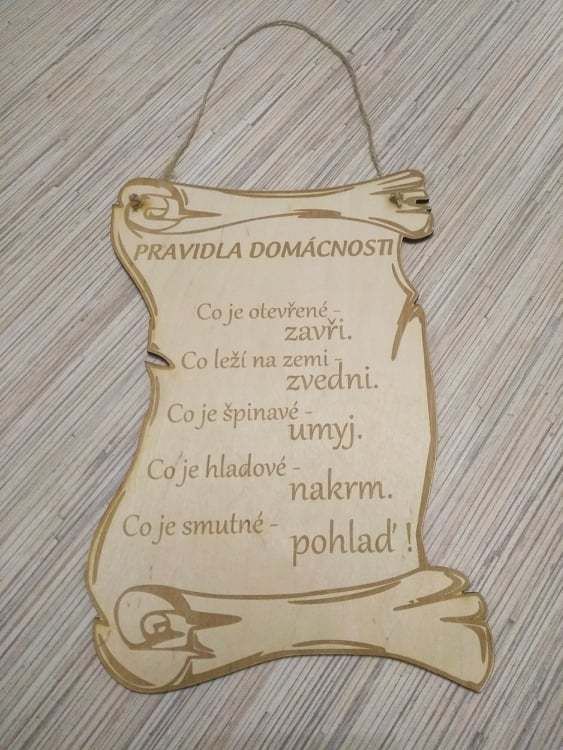 PRAVIDLA DOMÁCNOSTI
Co je otevřené -
zavři.
Co leží na zemi -
zvedni.
Co je špinavé -
umyj.
Co je hladové -
nakrm.
Co je smutné -
pohlaď !